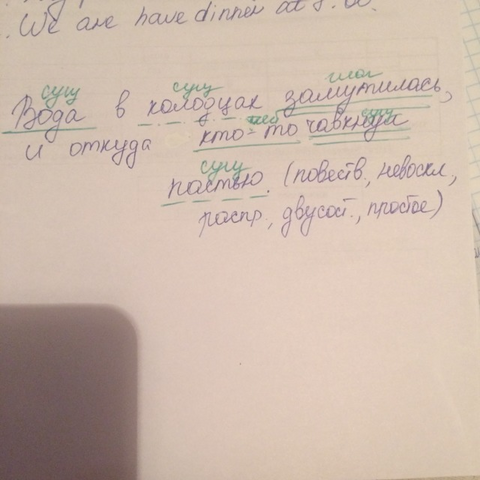 We are have dinner at 8.00.
сущ сущ глаг
Вода в колодцах замутилась,
и откуда кто-то чавкнул
сущ
пастью. (повеств., невоскл,
распр., двусост., простое)